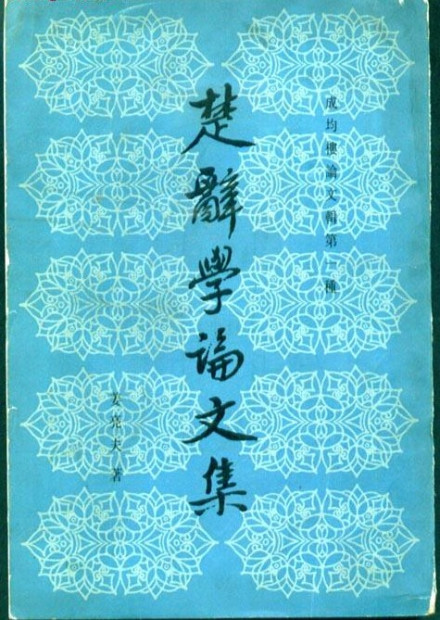 成均樓論文輯第一種
楚辭學論文集
姜亮夫著